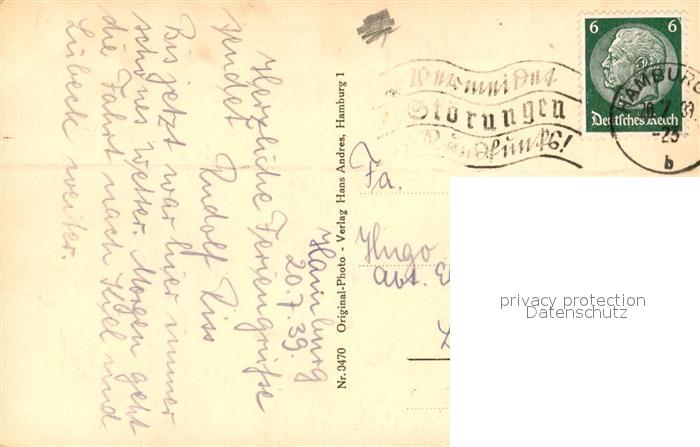 Hamburg
20.7.39.
Herzliche Feriengrüsse
sendet Rudolf Liss
Bis jetzt war hier immer
schönes Wetter. Morgen geht
die Fahrt nach Kiel und
Lübeck weiter.
Nr. 0470 Original-Photo - Verlag Hans Andres, Hamburg 1
Vermeidet
Störungen
Rundfunks!
6 6
Deutsches Reich
HAMBURG
-23
b
Fa.
Hugo
Abt.
privacy protection
Datenschutz